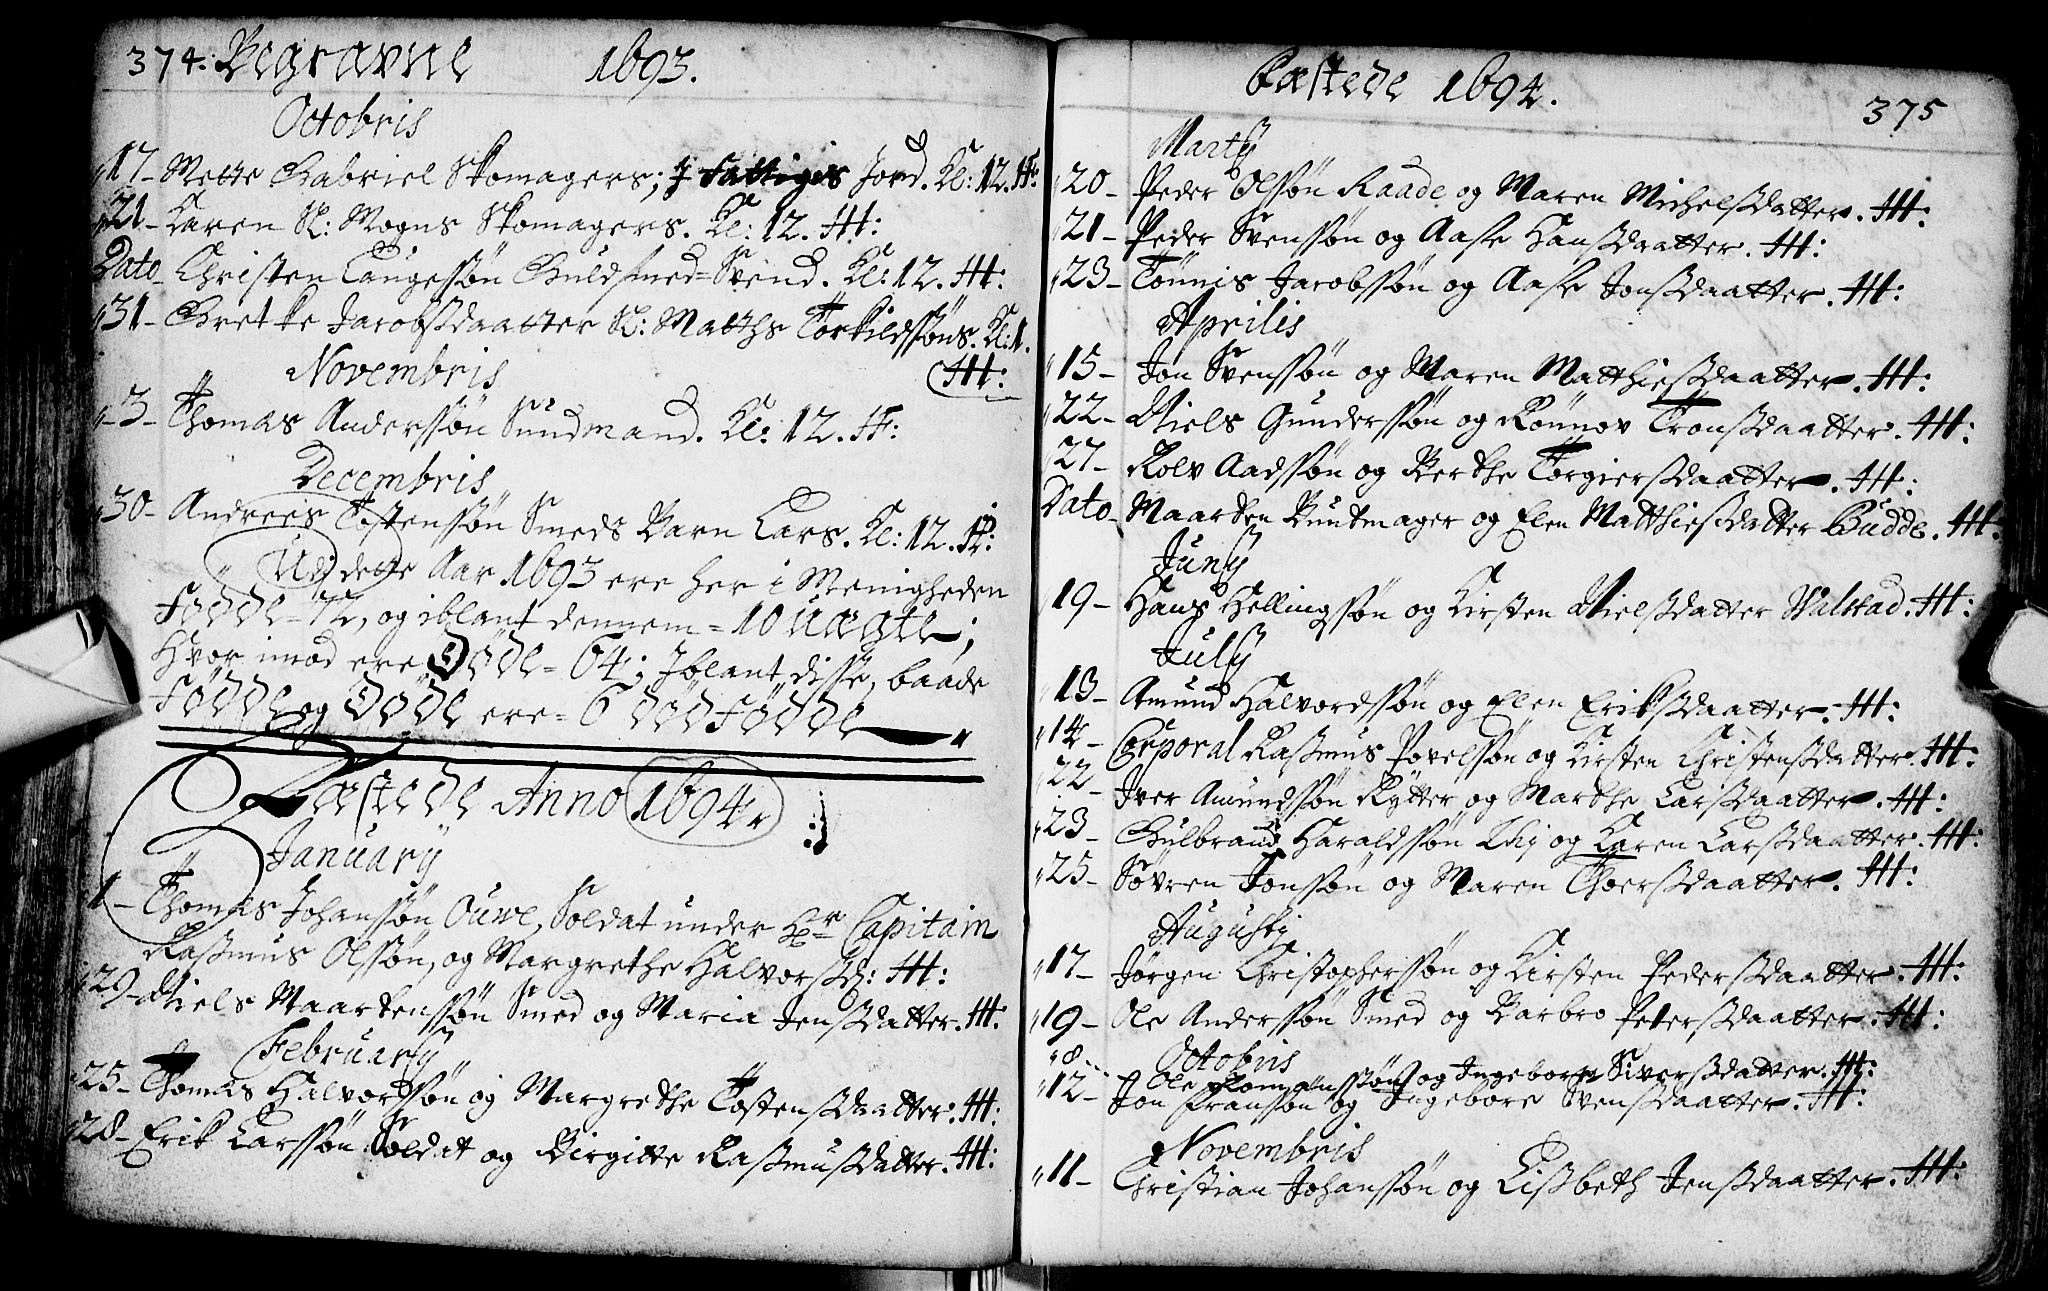 374. Begravne 1693.
Octobris
17 - Mette Gabriel Skomagers; I Fattiges Jord. Kl: 12. H:
21 - Karen Sl: Mogns Skomagers. Kl: 12. H:
Dato - Christen Taugesøn Guldsmed-Svend. Kl: 12. H:
31 - Grethe Jacobsdaatter Sl: Matths Torkildssøns. Kl: 1.
H:
Novembris
3 - Thomas Anderssøn Sundmand. Kl: 12. H:
Decembris
30 - Andrees Tostenssøn Smeds Barn Lars. Kl: 12. H:
Udi dette Aar 1693 ere her i Menigheden
Födde = 72, og iblant dennem = 10 uægte;
Hvor imod ere Döde = 64; Iblant disse, baade
Födde og Döde ere = 6 dödfödde
Fæstede Anno 1694.
Januarij
1 - Thomas Johanssøn Ouwe, Soldat under Hr Capitain
Rasmus Olssøn, og Margrethe Halvorsd: H:
29 - Niels Maartenssøn Smed og Maria Jensdatter. H:
Februarij
25 - Thomas Halvorssøn og Margrethe Tostensdaatter. H:
28 - Erik Larssøn Soldat og Birgitte Rasmusdatter. H:
Fæstede 1694.
375
Martij
20 - Peder Olsøn Raade og Maren Michelsdatter. H:
21 - Peder Svenssøn og Aase Hansdaatter. H:
23 - Tönnis Jacobssøn og Aase Jonsdaatter. H:
Aprilis
15 - Jon Svenssøn og Maren Matthiesdaatter. H:
22 - Niels Gunderssøn og Rönnov Tronsdaatter. H:
27 - Rolv Aadssøn og Berthe Torgiersdaatter. H:
Dato - Maarten Buntmager og Elen Matthiesdatter Budde. H:
Junij
19 - Hans Hellingsøn og Kirsten Nielsdatter Walstad. H:
Julij
13 - Amund Halvordssøn og Elen Eriksdaatter. H:
14 - Corporal Rasmus Povelsøn og Kirsten Christensdatter. H:
22 - Iver Amundssøn Rytter og Marthe Larsdaatter. H:
23 - Gulbrand Haraldssøn og Karen Larsdaatter. H:
25 - Søvren Jonssøn og Maren Thoersdaatter. H:
Augustij
17 - Jørgen Christopherssøn og Kirsten Pedersdaatter. H:
19 - Ole Anderssøn Smed og Barbro Petersdaatter. H:
Octobris
8 Ole og Ingeborg Siversdatter. H:
12 - Jon Franssøn og Ingebore Svensdaatter. H:
Novembris
11 - Christian Johanssøn og Lisbeth Jensdaatter. H: